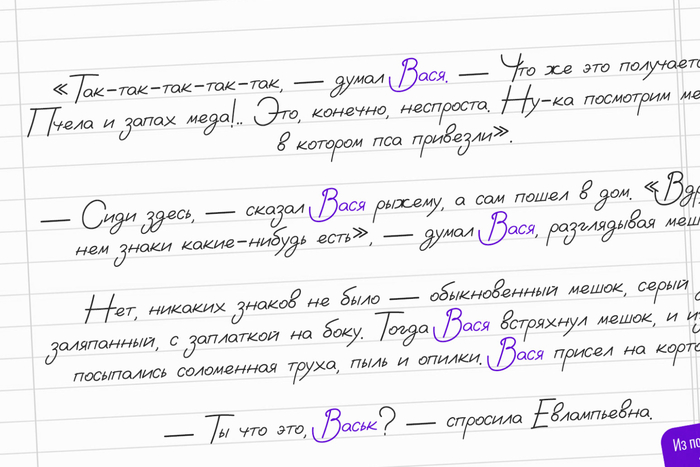 «Так-так-так-так-так, — думал Вася. — Что же это
Пчела и запах меда!.. Это, конечно, неспроста. Ну-ка посмотрим
в котором пса привезли».
— Сиди здесь, — сказал Вася рыжему, а сам пошел в дом.
нем знаки какие-нибудь есть», — думал Вася, разглядывая
Нет, никаких знаков не было — обыкновенный мешок, серый
заляпанный, с заплаткой на боку. Тогда Вася встряхнул мешок, и
посыпались соломенная труха, пыль и опилки. Вася присел на
— Ты что это, Васьк? — спросила Евлампьевна.
Из